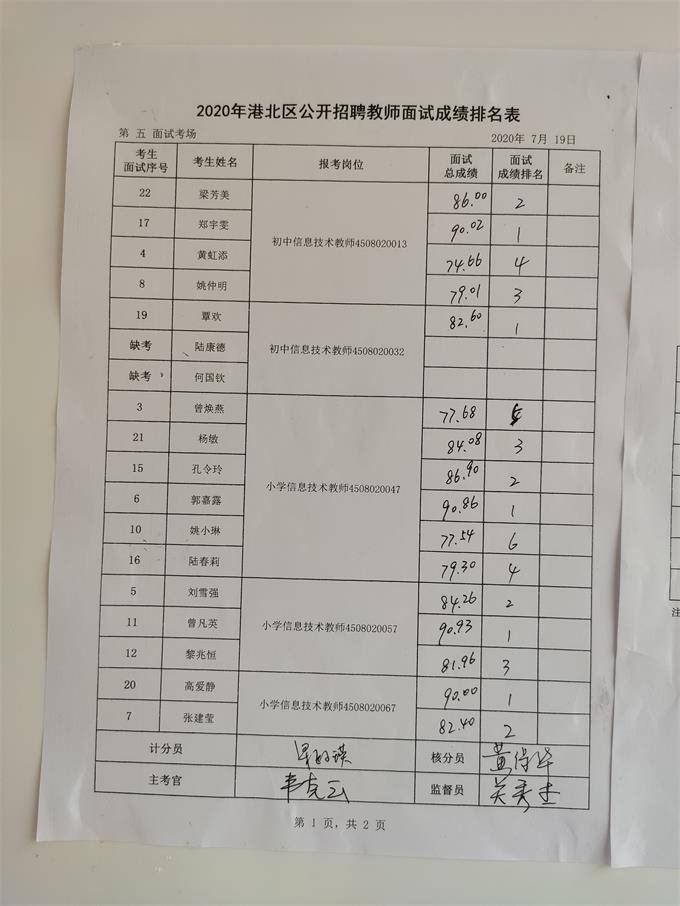 2020年港北区公开招聘教师面试成绩排名表
第 五 面试考场 2020年 7月 19日
考生面试序号 考生姓名 报考岗位 面试总成绩 面试成绩排名 备注
22 梁芳美 初中信息技术教师4508020013 86.00 2
17 郑宇雯 90.02 1
4 黄虹添 74.66 4
8 姚仲明 79.01 3
19 覃欢 初中信息技术教师4508020032 82.60 1
缺考 陆康德
缺考 何国钦
3 曾焕燕 小学信息技术教师4508020047 77.68 5
21 杨敏 84.08 3
15 孔令玲 86.90 2
6 郭嘉露 90.86 1
10 姚小琳 77.54 6
16 陆春莉 79.30 4
5 刘雪强 小学信息技术教师4508020057 84.26 2
11 曾凡英 90.93 1
12 黎兆恒 81.96 3
20 高爱静 小学信息技术教师4508020067 90.00 1
7 张建莹 82.40 2
计分员 核分员
主考官 韦克云 监督员
第 1 页，共 2 页